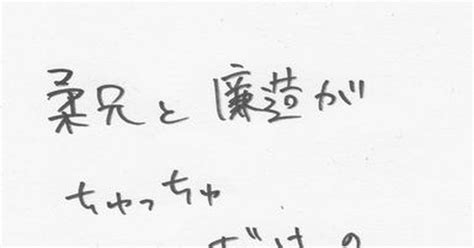 柔兄と廉造が
ちゃっちゃ
だけの